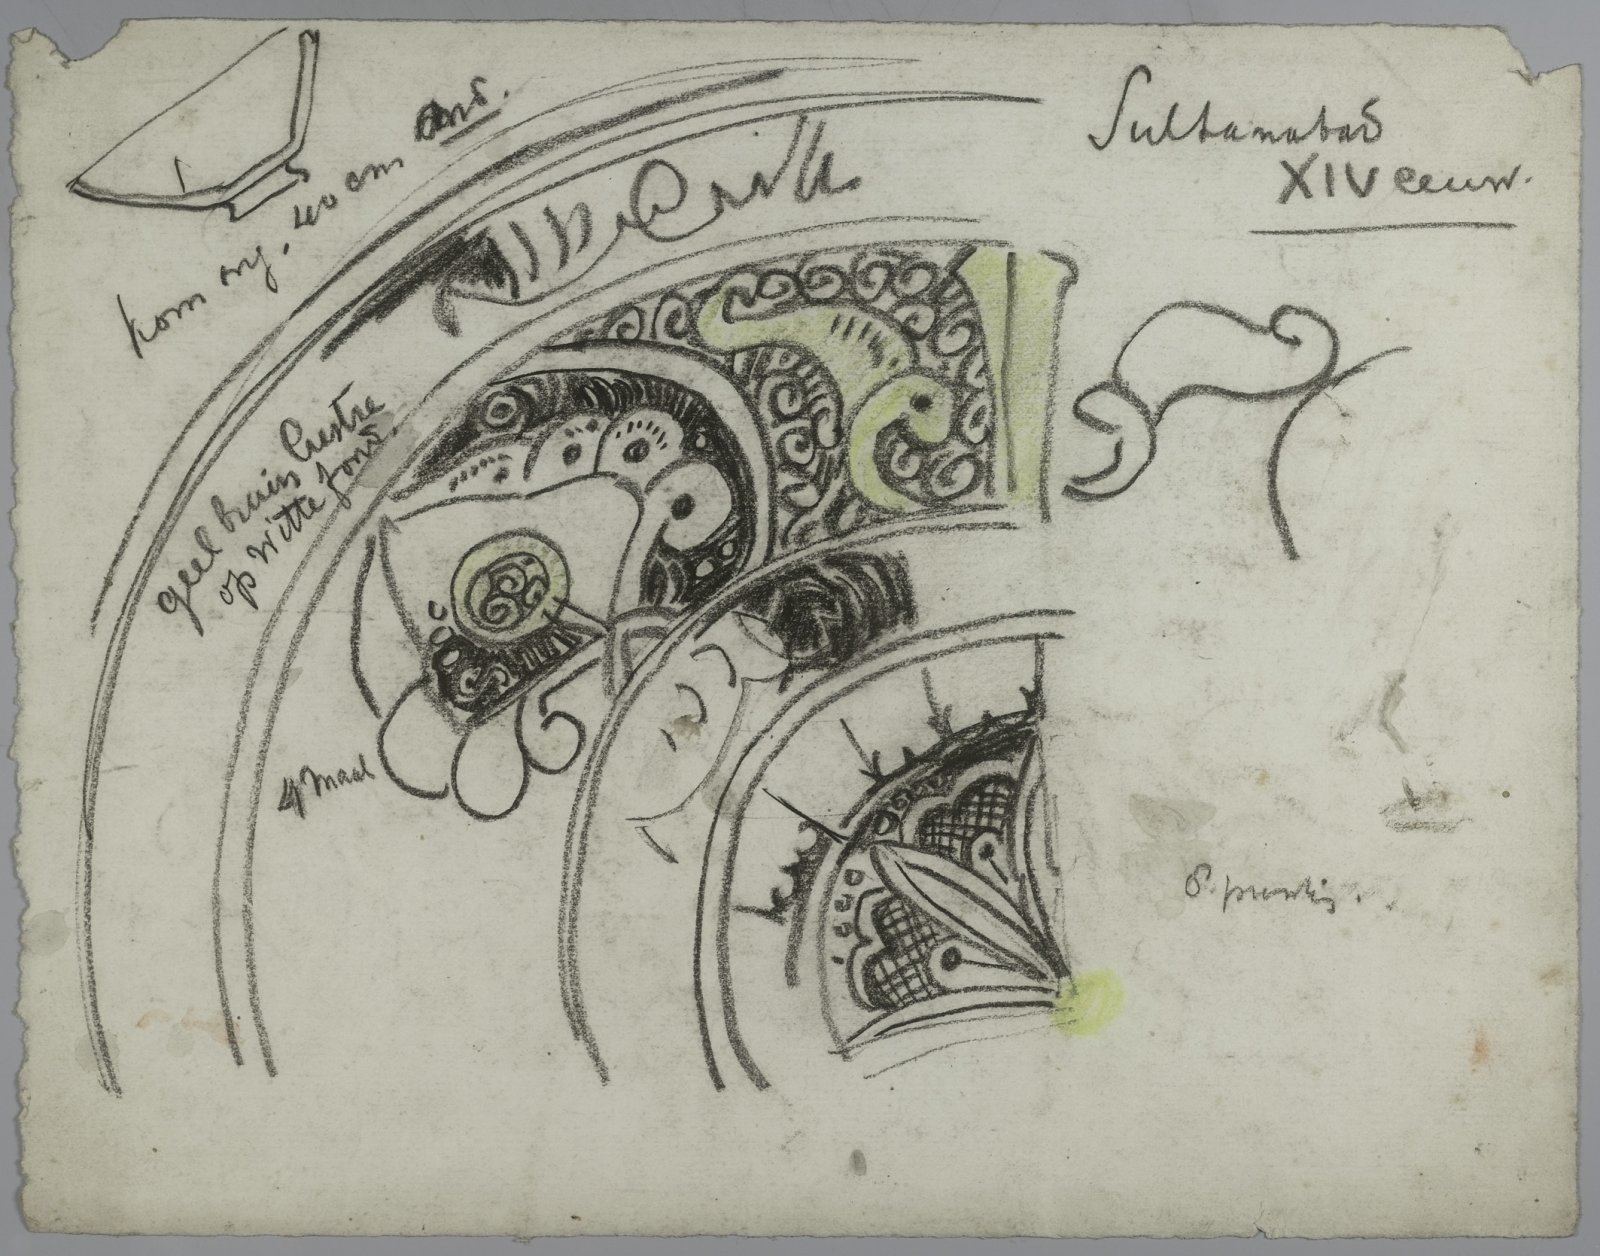 Sultanabad
XIV eeuw.
kom ong. 40 cm
geel bruin lustre
op witte fond.
4 maal